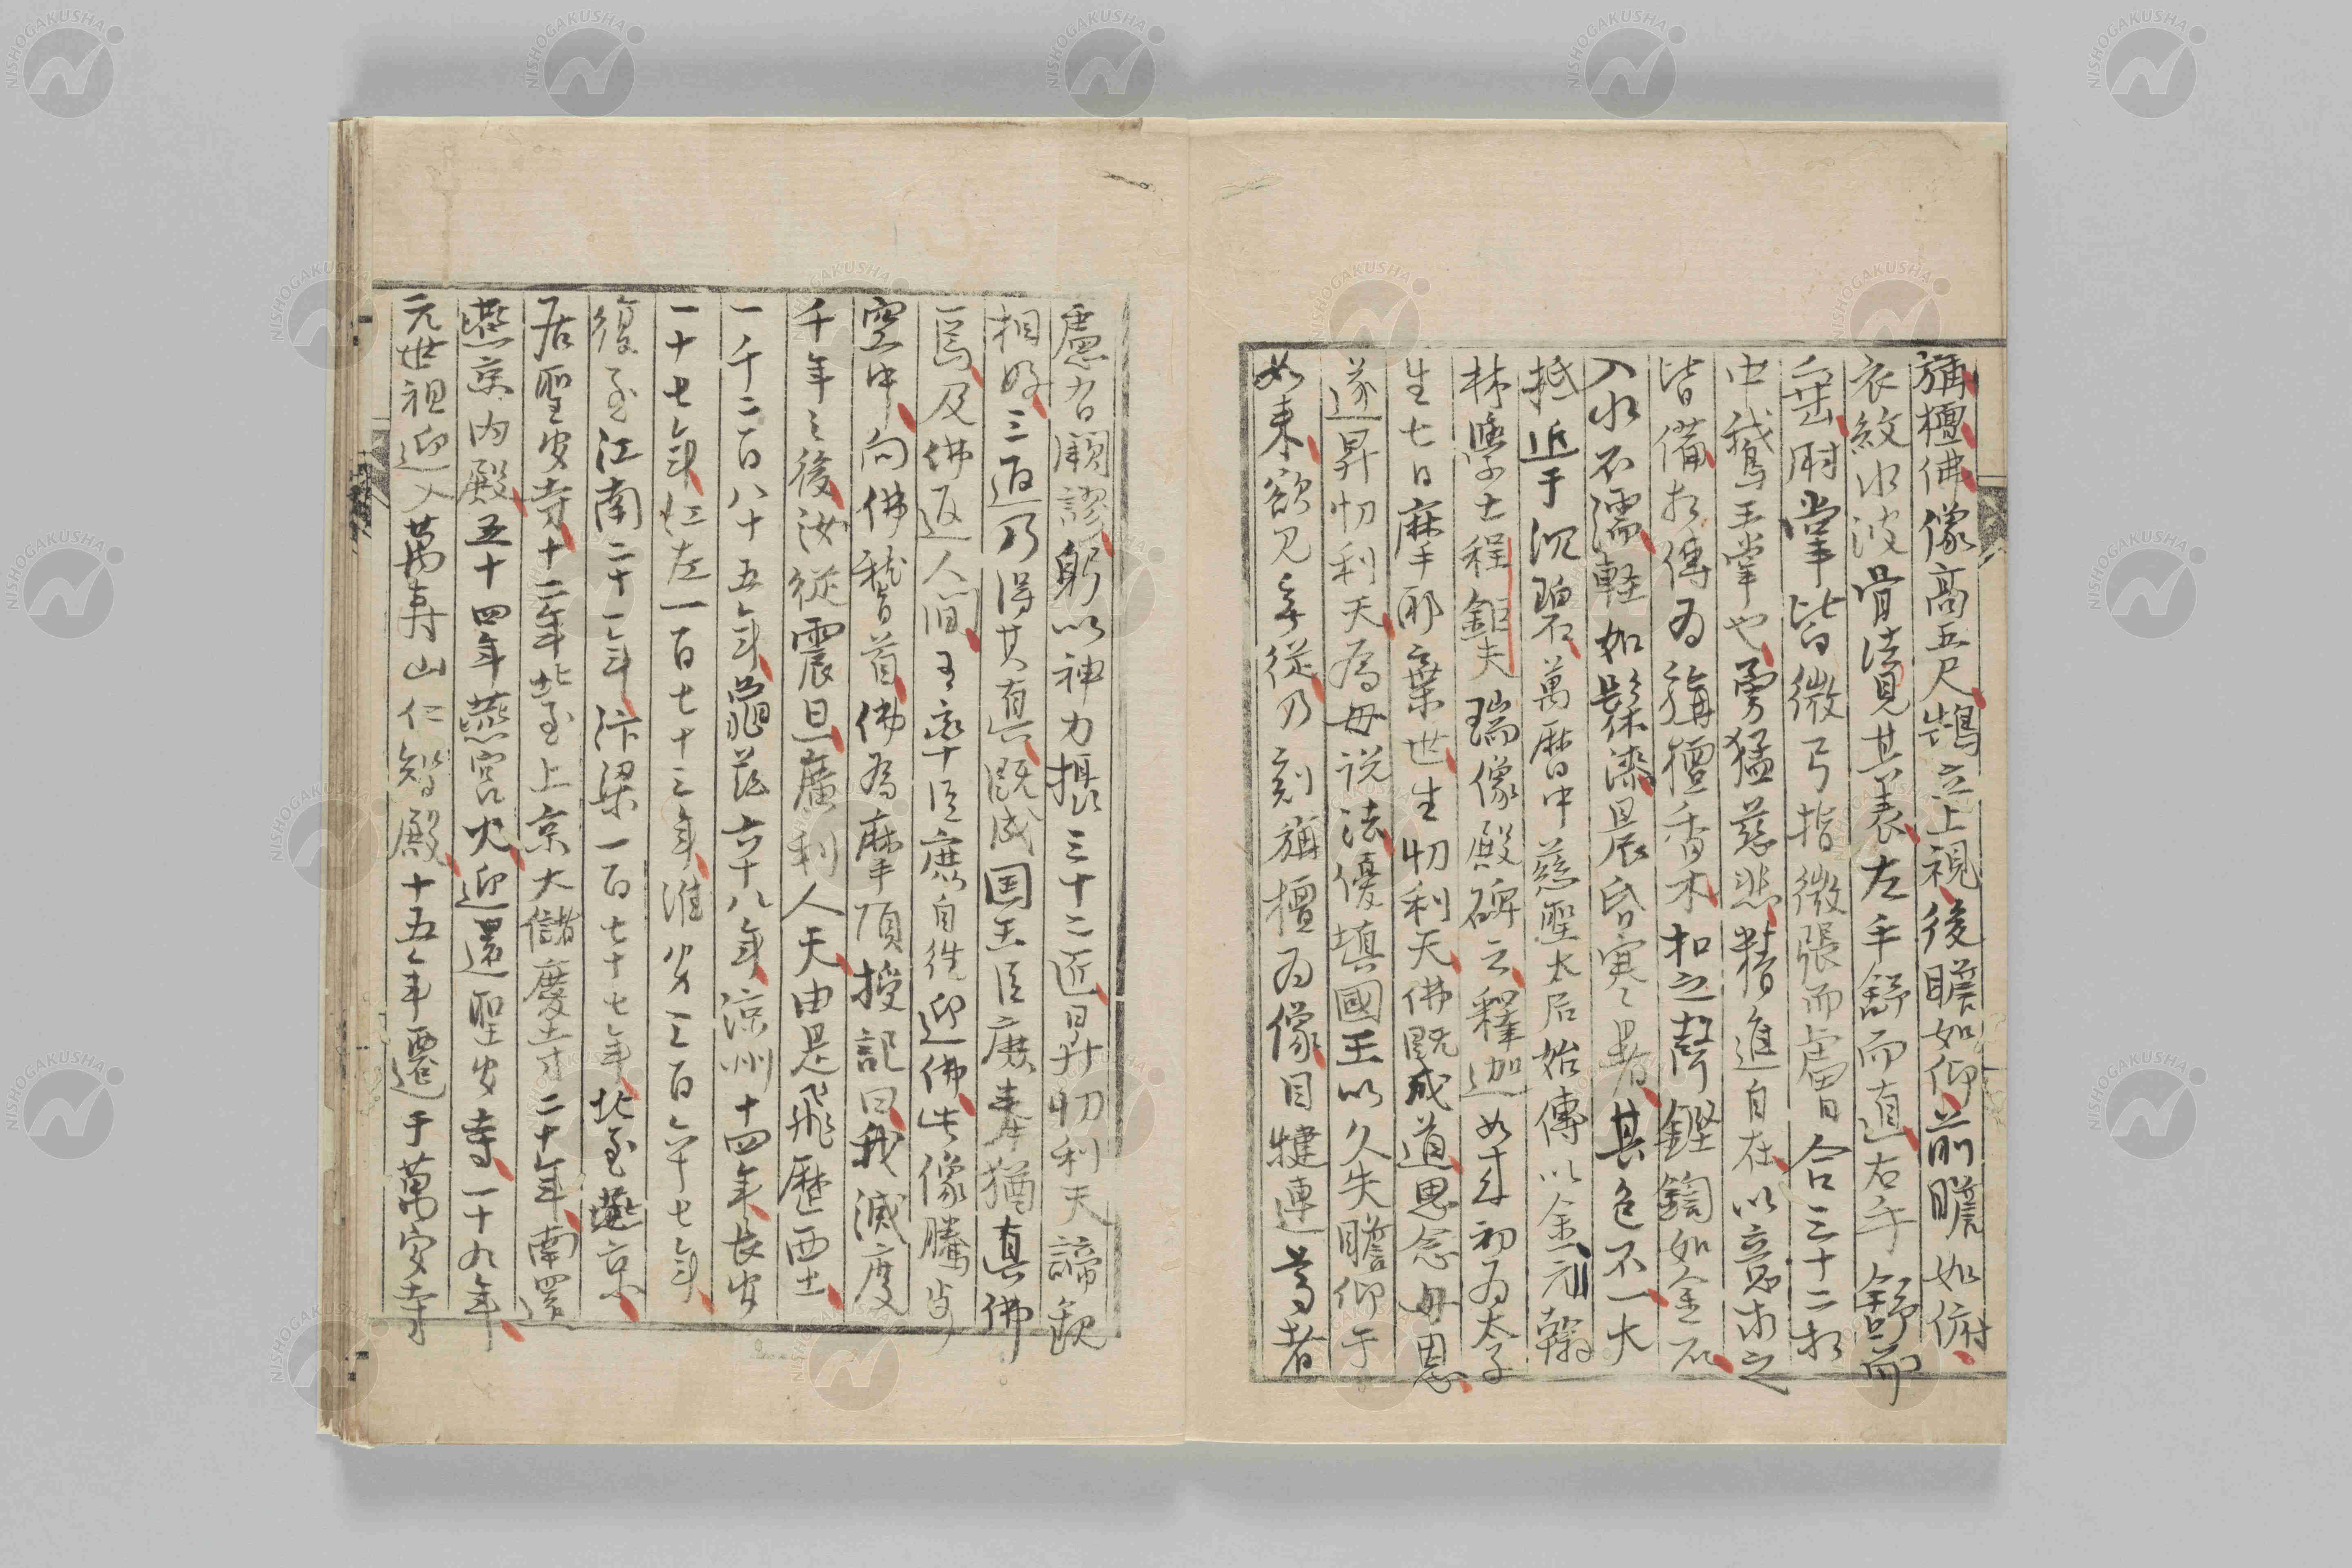 旃檀佛像高五尺鵠立上視後瞻如仰前瞻如俯
衣紋水波骨法見其表左手舒而直右手舒而
垂肘掌皆微弓指微張而膚合三十二相
中鵝王掌也勇猛慈悲精進自在以意求之
皆備相傳為旃檀香木扣之聲鏗鍧如金石
入水不濡輕如髹漆晨昏寒暑其色不一大
抵近于沉碧萬曆中慈聖太后始傳以金元翰
林學士程鉅夫瑞像殿碑云釋迦如来初為太子
生七日摩耶棄世生忉利天佛既成道思念母恩
遂昇忉利天為母説法優填國王以久失瞻仰于
如来欲見無從乃刻旃檀為像目犍連尊者
慮有闕謬躬以神力攝三十二匠昇忉利天諦観
相好三返乃得其真既成国王臣庶奉猶真佛
焉及佛返人間王率臣庶自徃迎佛此像騰歩
空中向佛稽首佛為摩頂授記曰我滅度
千年之後汝從震旦廣利人天由是飛歴西土
一千二百八十五年龜茲六十八年涼州十四年長安
一十七年江左一百七十三年淮安三百六十七年
復至江南二十一年汴梁一百七十七年北至燕京
居聖安寺十二年北至上京大儲慶寺二十年南還
燕京内殿五十四年燕宮火迎還聖安寺一十九年
元世祖迎入萬寿山仁智殿十五年遷于萬安寺
NISHOGAKUSHA